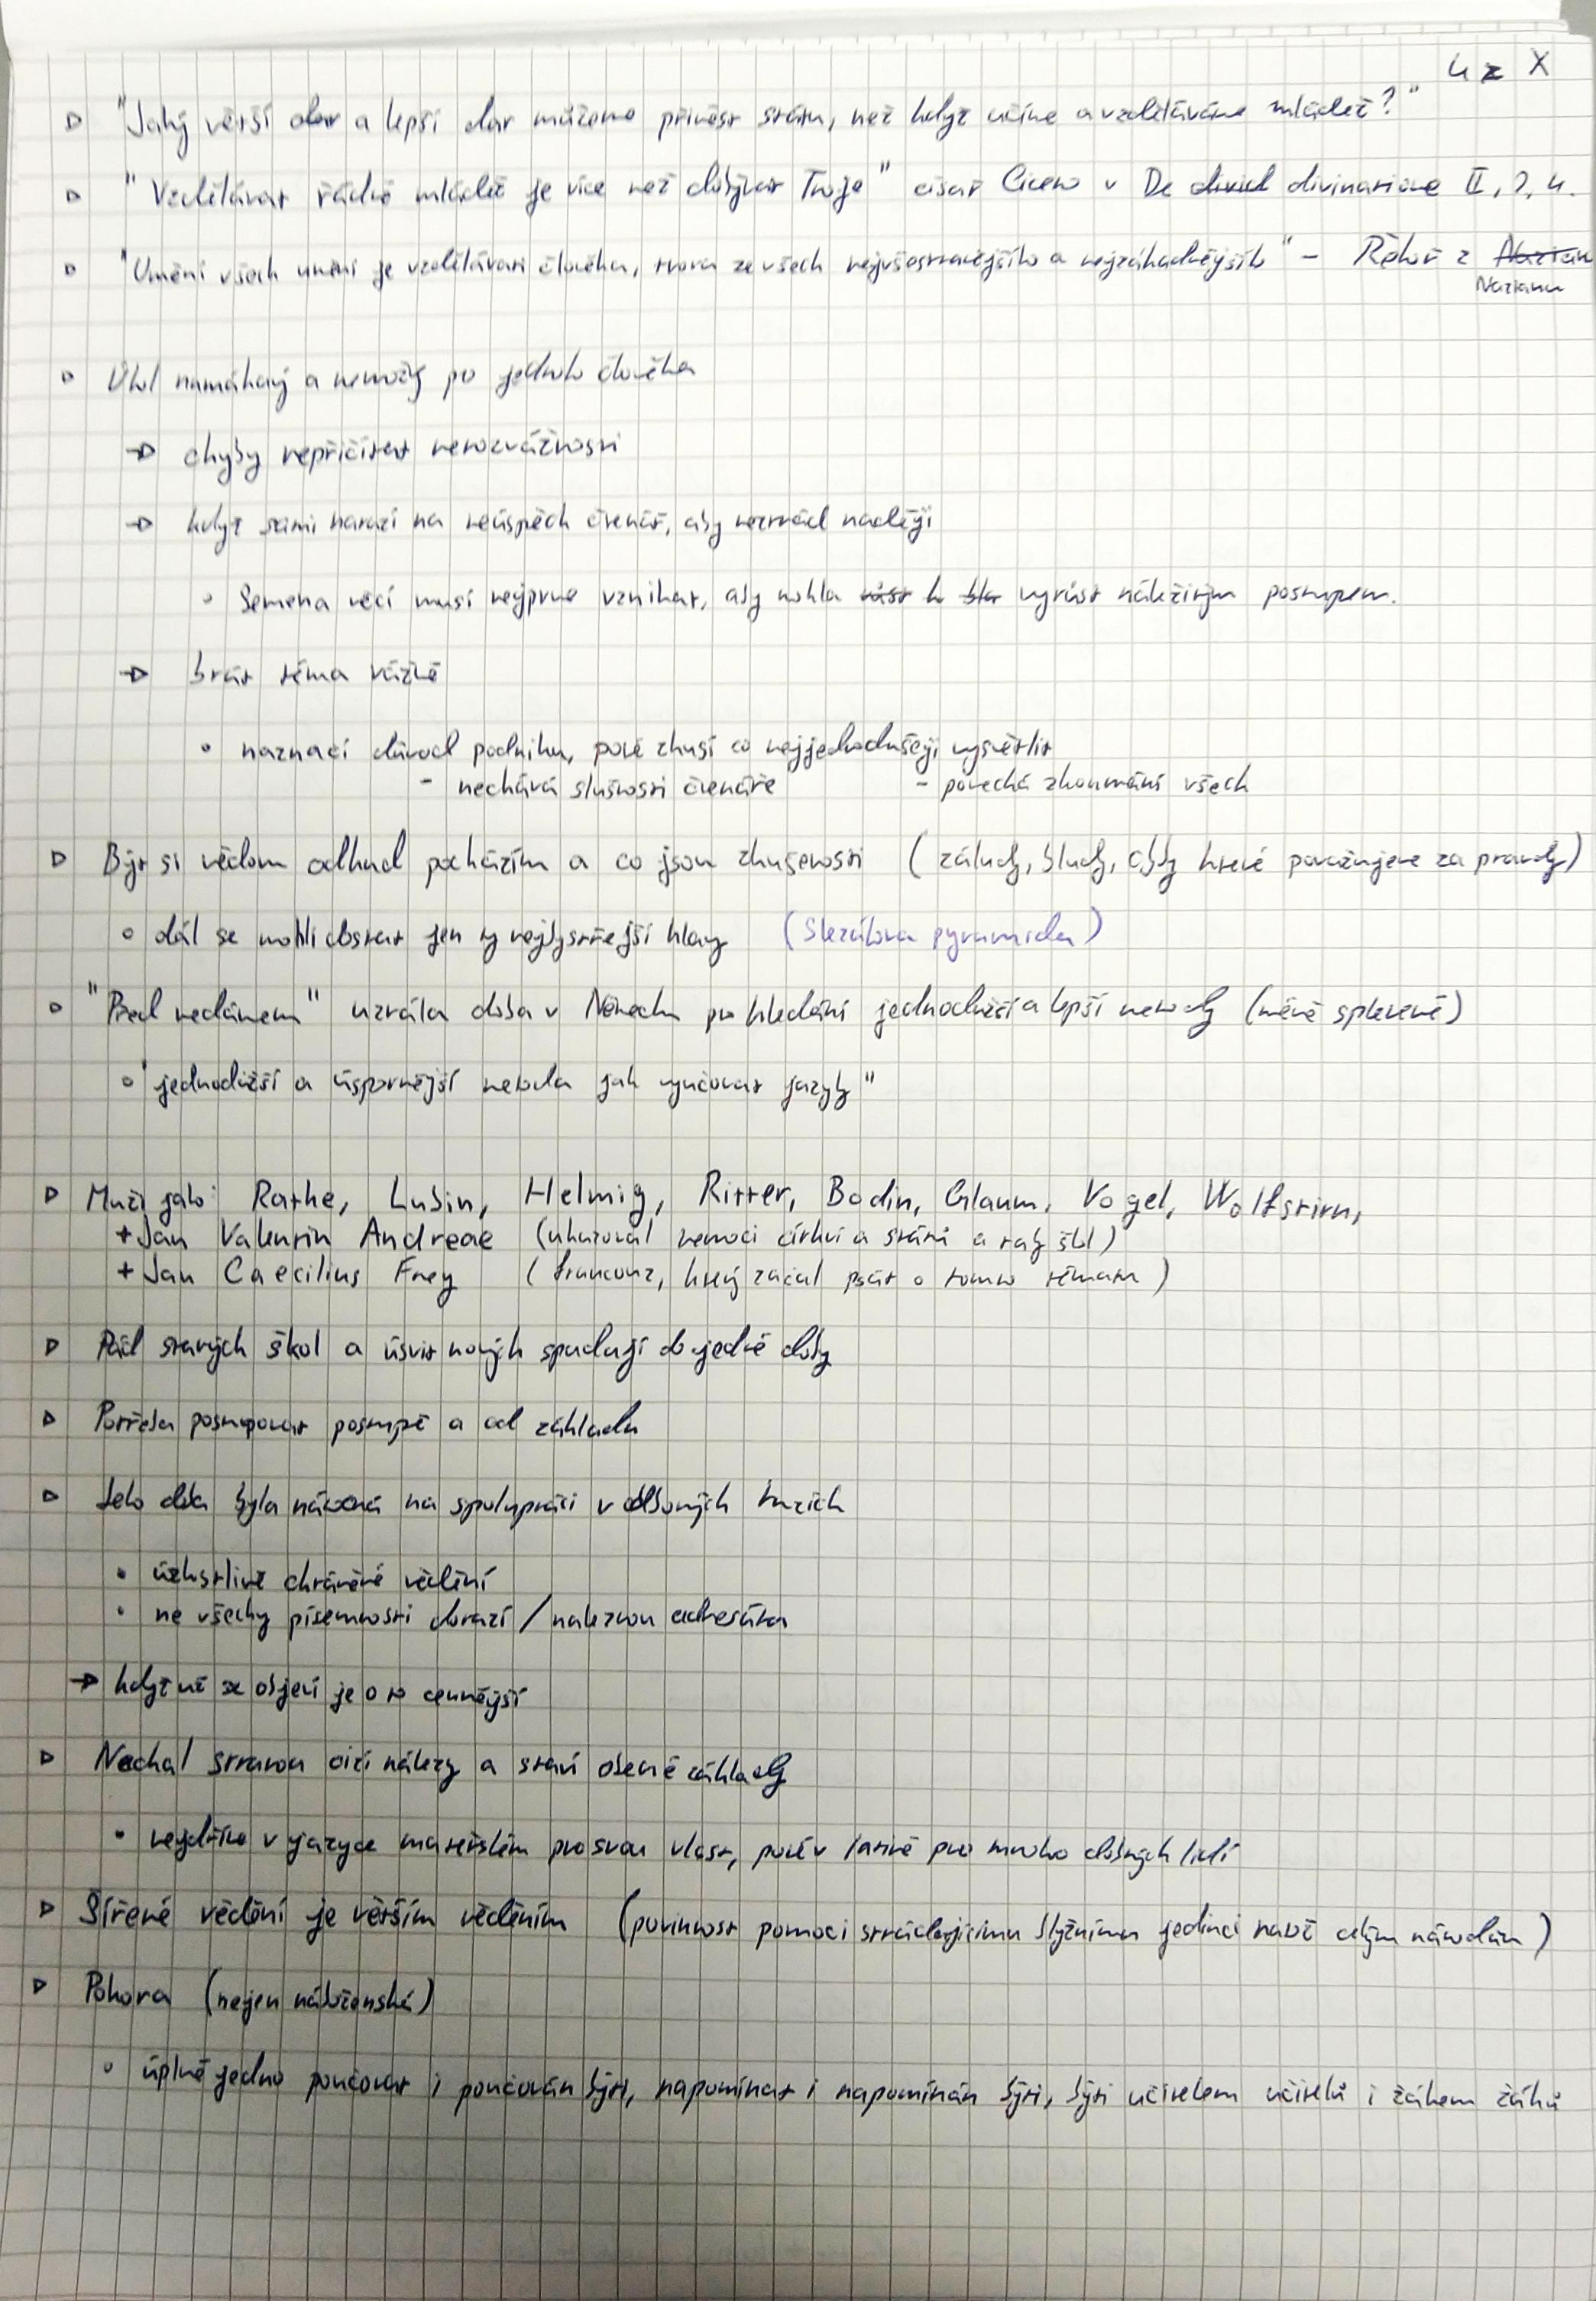 4 z X
▷ "Jaký větší dar a lepší dar můžeme přinést státu, než když učíme a vzděláváme mládež?"
▷ "Vzdělávat řádně mládež je více než dobývat Troje" císař Cicero v De divid divinatione II, 2, 4.
▷ "Umění všech umění je vzdělávati člověka, tvora ze všech nejvšestrannějšího a nejzáhadnějšíh" - Řehoř z Nazian
Nazianu
▷ Úkol namáhavý a nemožný po jednoho člověka
→ chyby nepřičítat nerozvážnosti
→ když sami narazí na neúspěch čtenář, aby neztrácel naději
◦ Semena věcí musí nejprve vznikat, aby mohla růst k vyrůst náležitým postupem.
→ brát téma vážně
◦ naznačí důvod podniku, poté zkusí co nejjednodušeji vysvětlit
- nechává slušnosti čtenáře - ponechá zkoumání všech
▷ Být si vědom odkud pocházím a co jsou zkušenosti (záludy, bludy, které považujeme za pravdy)
◦ dál se mohli dostat jen ty nejbystřejší hlavy (Slezákova pyramida)
◦ "Před nedávnem" uzrála doba v Německu pro hledání jednodušší a lepší metody (méně spletené)
◦ "jednodušší a úspornější metoda jak vyučovat jazyky"
▷ Muži jako: Rathe, Lubin, Helmig, Ritter, Bodin, Glaum, Vogel, Wolfstirn,
+ Jan Valentin Andreae (ukazoval nemoci církví a států a taky škol)
+ Jan Caecilius Frey (francouz, který začal psát o tomto tématu)
▷ Pád starých škol a úsvit nových spadají do jedné doby
▷ Potřeba postupovat postupně a od základu
▷ Jeho doba byla náročná na spolupráci v odborných kruzích
• úzkostlivě chráněné vědění
• ne všechny písemnosti dorazí / naleznou adresáta
→ když už se objeví je o to cennější
▷ Nechal stranou cizí nálezy a staví obecné základy
• nejdříve v jazyce mateřském pro svou vlast, poté v latině pro mnoho dobrých lidí
▷ Šířené vědění je větším věděním (povinnost pomoci strádajícímu bližnímu jedinci natož celým národům)
▷ Pokora (nejen náboženská)
◦ úplně jedno poučovat i poučován býti, napomínat i napomínán býti, býti učitelem učitelů i žákem žáků